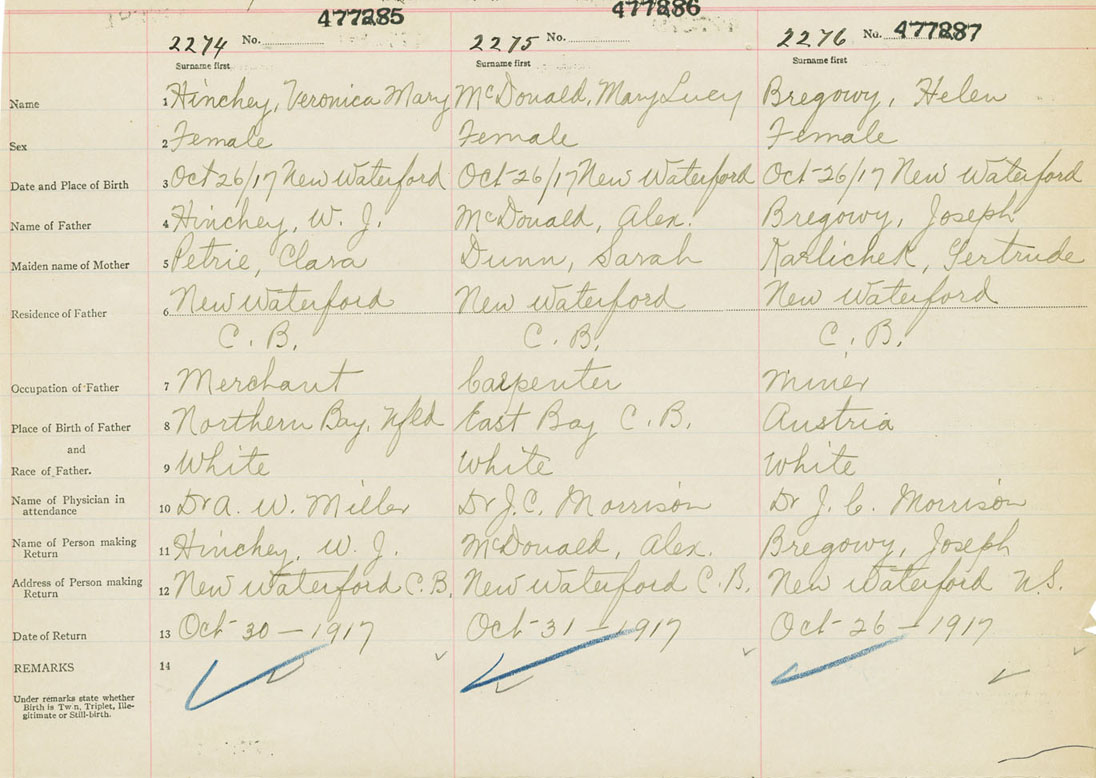 477285 477286
2274 No. 2275 No. 2276 No. 477287
Surname first Surname first Surname first
Name 1 Hinchey, Veronica Mary McDonald, Mary Lucy Bregowy, Helen
Sex 2 Female Female Female
Date and Place of Birth 3 Oct 26/17 New Waterford Oct-26/17 New Waterford Oct-26/17 New Waterford
Name of Father 4 Hinchey, W. J. McDonald, Alex. Bregowy, Joseph
Maiden name of Mother 5 Petrie, Clara Dunn, Sarah Karlichek, Gertrude
Residence of Father 6 New Waterford New Waterford New Waterford
C. B. C. B. C. B.
Occupation of Father 7 Merchant Carpenter Miner
Place of Birth of Father 8 Northern Bay, Nfld East Bay C. B. Austria
and
Race of Father. 9 White White White
Name of Physician in
attendance 10 Dr A. W. Miller Dr J. C. Morrison Dr J. C. Morrison
Name of Person making
Return 11 Hinchey, W. J. McDonald, Alex. Bregowy, Joseph
Address of Person making
Return 12 New Waterford C. B. New Waterford C. B. New Waterford N.S.
Date of Return 13 Oct-30-1917 Oct-31-1917 Oct-26-1917
REMARKS 14
Under remarks state whether
Birth is Twin, Triplet, Ille-
gitimate or Still-birth.